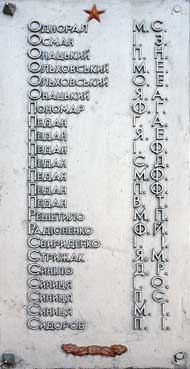 Однорал М. С.
Осман І. З.
Онацький П. І.
Ольховський М. Е.
Ольховський О. Е.
Онацький Я. А.
Пономар Ф. І.
Педан Г.
Педан Я.
Педан І.
Педан С.
Педан М.
Педан П.
Педан В.
Решетило М. П.
Радіоненко Ф. Й.
Свириденко І. І.
Стрижак Я. М.
Синило Д. Р.
Синиця І. О.
Синиця П. С.
Синиця М. І.
Сидоров П. І.